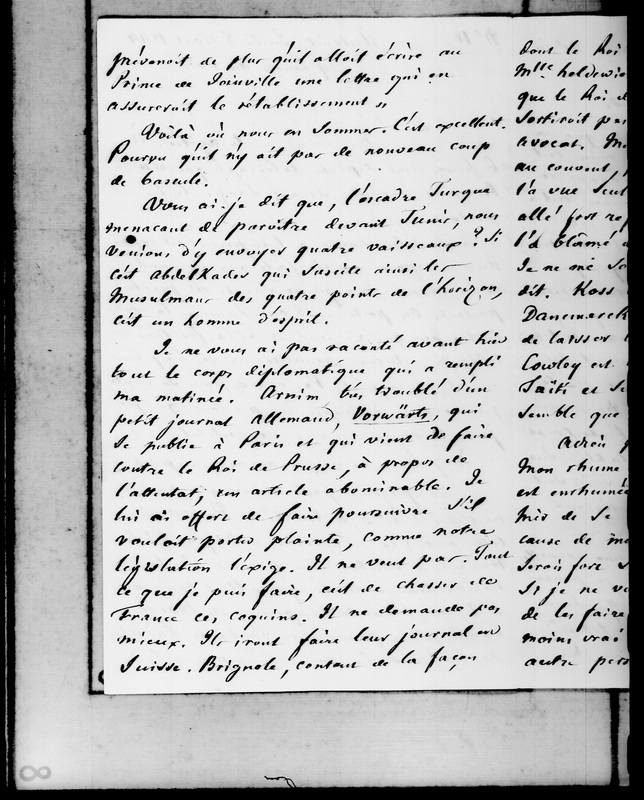 prévenoit de plus qu'il alloit écrire au
Prince de Joinville une lettre qui en
assureroit le rétablissement »
Voilà où nous en sommes. C'est excellent.
Pourvu qu'il n'y ait pas de nouveau coup
de bascule.
Vous ai-je dit que, l'escadre Turque
menacant de paroitre devant Tunis, nous
venions d'y envoyer quatre vaisseaux ? Si
c'est Abdel Kader qui suscite ainsi les
Musulmans des quatre points de l'horizon,
c'est un homme d'esprit.
Je ne vous ai pas raconté avant hier
tout le corps diplomatique qui a rempli
ma matinée. Arnim très troublé d'un
petit journal allemand, Vorwärts, qui
se publie à Paris et qui vient de faire
contre le Roi de Prusse, à propos de
l'attentat, un article abominable. Je
lui ai offert de faire poursuivre s'il
vouloit porter plainte, comme notre
législation l'exige. Il ne veut pas. Tout
ce que je puis faire, c'est de chasser de
France ces coquins. Il ne demande pas
mieux. Ils iront faire leur journal en
Suisse. Brignole, content de la façon
dont le Roi
Mlle
que le Roi
sortiroit pas
avocat.
au couvent,
l'a vue seul
allé fort
l'a blâmé
Je ne me
dit. Koss
Danemarck
de laisser
Cowley est
Taïti et
semble que
Adieu
Mon rhume
est enrhumé
mis de se
cause de
serois fort
Si je ne
de les faire
moins vrai
autre